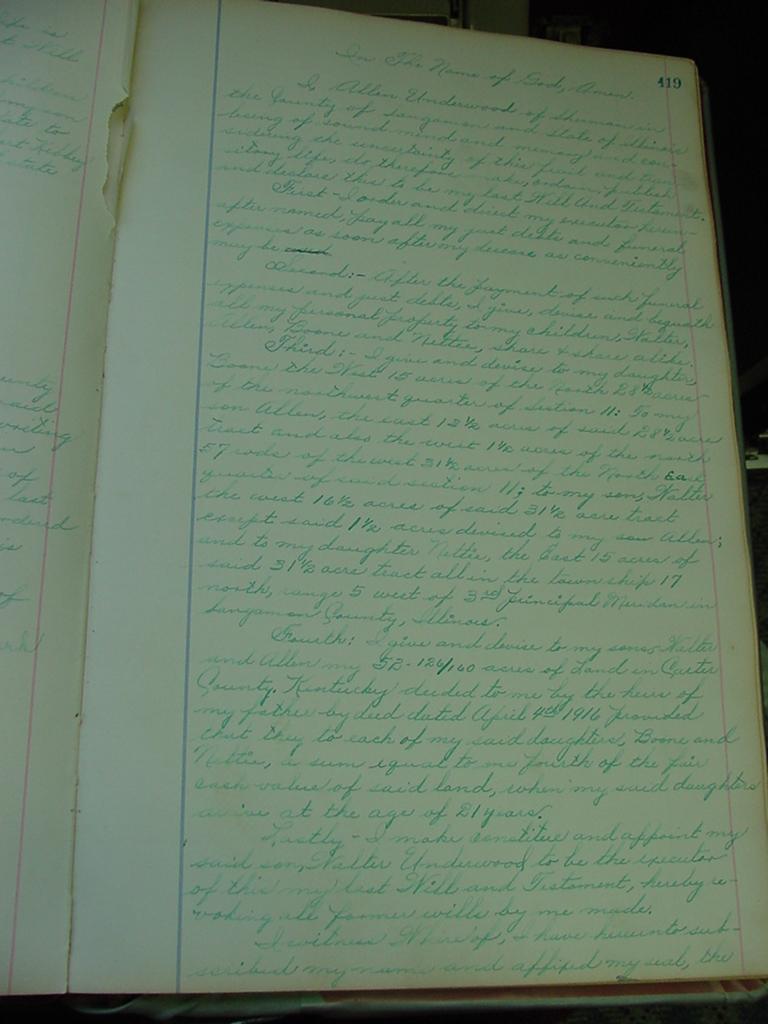 119
In The Name of God, Amen.
I, Allen Underwood of Sherman in
the County of Sangamon and state of Illinois
being of sound mind and memory and con-
sidering the uncertainty of this frail and tran-
sitory life, do therefore make, ordain, publish
and declare this to be my last Will And Testament.
First - I order and direct my executor herein-
after named, pay all my just debts and funeral
expenses as soon after my decease as conveniently
may be
Second:- After the payment of such funeral
expenses and just debts, I give, devise and bequeath
all my personal property to my children, Walter,
Allen, Boone and Nettie, share & share alike.
Third:- I give and devise to my daughter,
Boone the West 15 acres of the North 28½ acres
of the northwest quarter of Section 11: To my
son Allen, the east 13½ acres of said 28½ acre
tract and also the west 1½ acres of the north
57 rods of the west 31½ acres of the North East
quarter of said section 11; to my son, Walter
the west 16½ acres of said 31½ acre tract
except said 1½ acres devised to my son Allen;
and to my daughter Nettie, the East 15 acres of
said 31½ acre tract all in the town ship 17
north, range 5 west of 3rd Principal Meridan in
Sangamon County, Illinois.
Fourth: I give and devise to my sons, Walter
and Allen my 52-126/160 acres of Land in Carter
County, Kentucky deeded to me by the heirs of
my father by deed dated April 4th 1916 provided
that they to each of my said daughters, Boone and
Nettie, a sum equal to one fourth of the fair
cash value of said land, when my said daughters
arive at the age of 21 years.
Lastly - I make constitue and appoint my
said son, Walter Underwood to be the executor
of this my last Will and Testament, hereby re-
voking all former wills by me made.
I witness Where of, I have hereunto sub-
scribed my name and affixed my seal, the